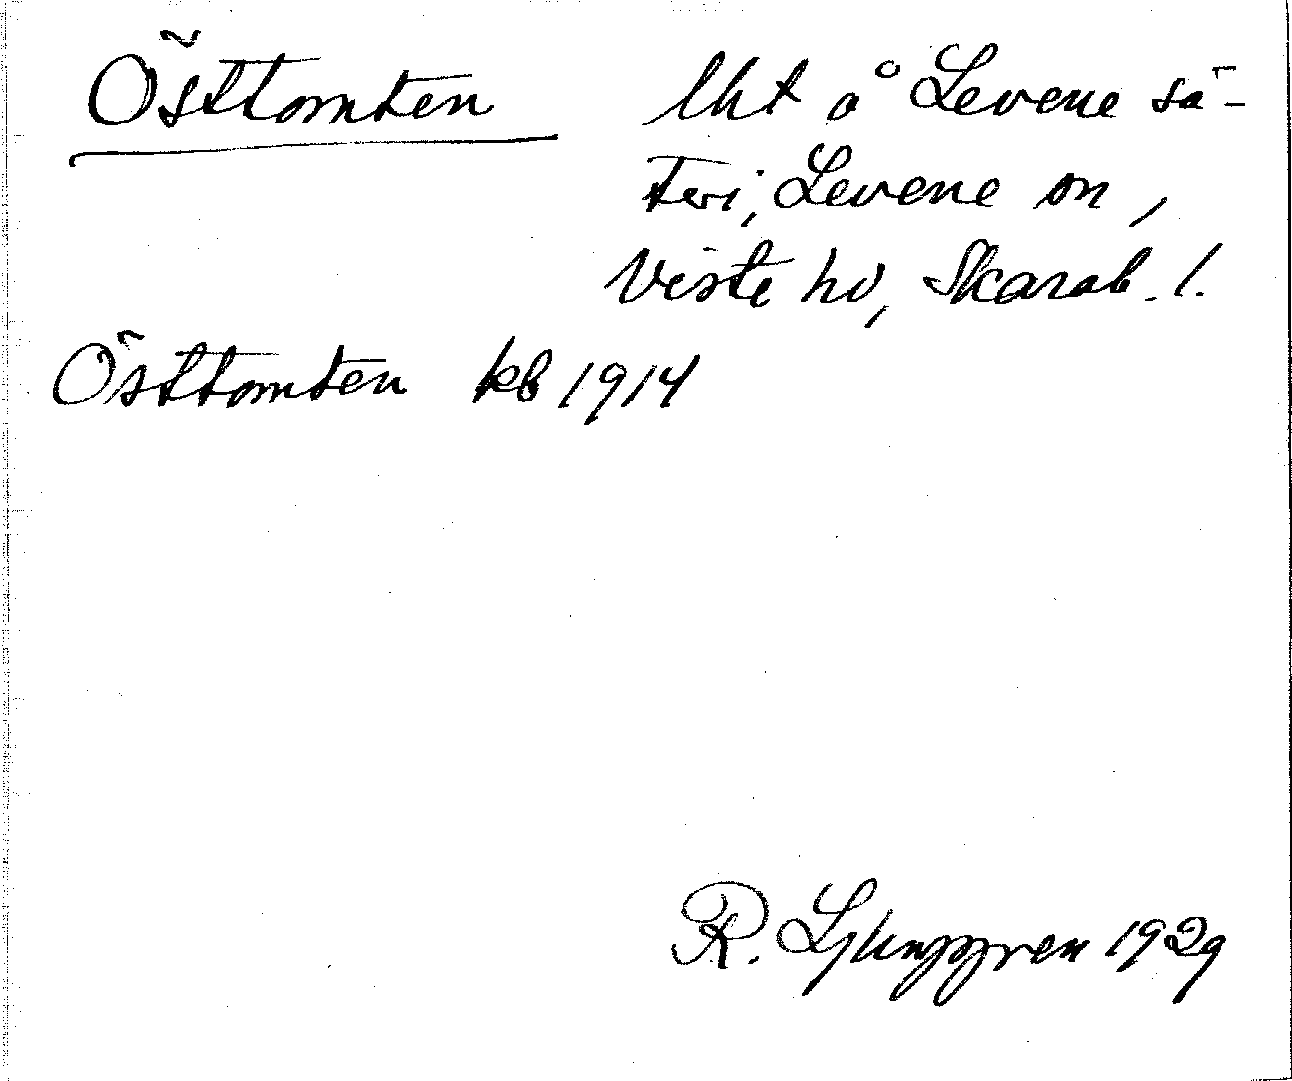 Östtomten
lht å Levene sä-
teri, Levene sn,
Viste hd, Skarab. l.
Östtomten kb 1914
R. Ljunggren 1929